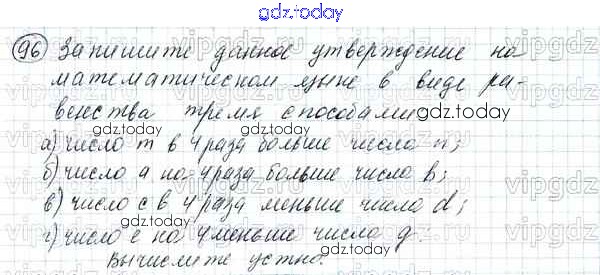 gdz.today
96 Запишите данное утверждение на
математическом языке в виде ра-
венства тремя способами
gdz.today gdz.today
а) число m в 4 раза больше числа n;
б) число а на 4 раза больше числа b;
в) число с в 4 раза меньше числа d;
г) число е на 4 меньше числа g.
gdz.today gdz.today
Вычислите устно.